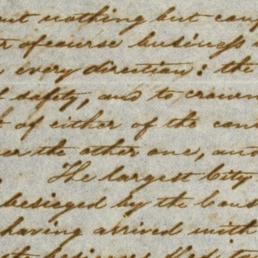 but nothing but
of course business
every direction: the
safety, and to crown
of either of the
the other one, and
The largest City
besieged by the
having arrived with